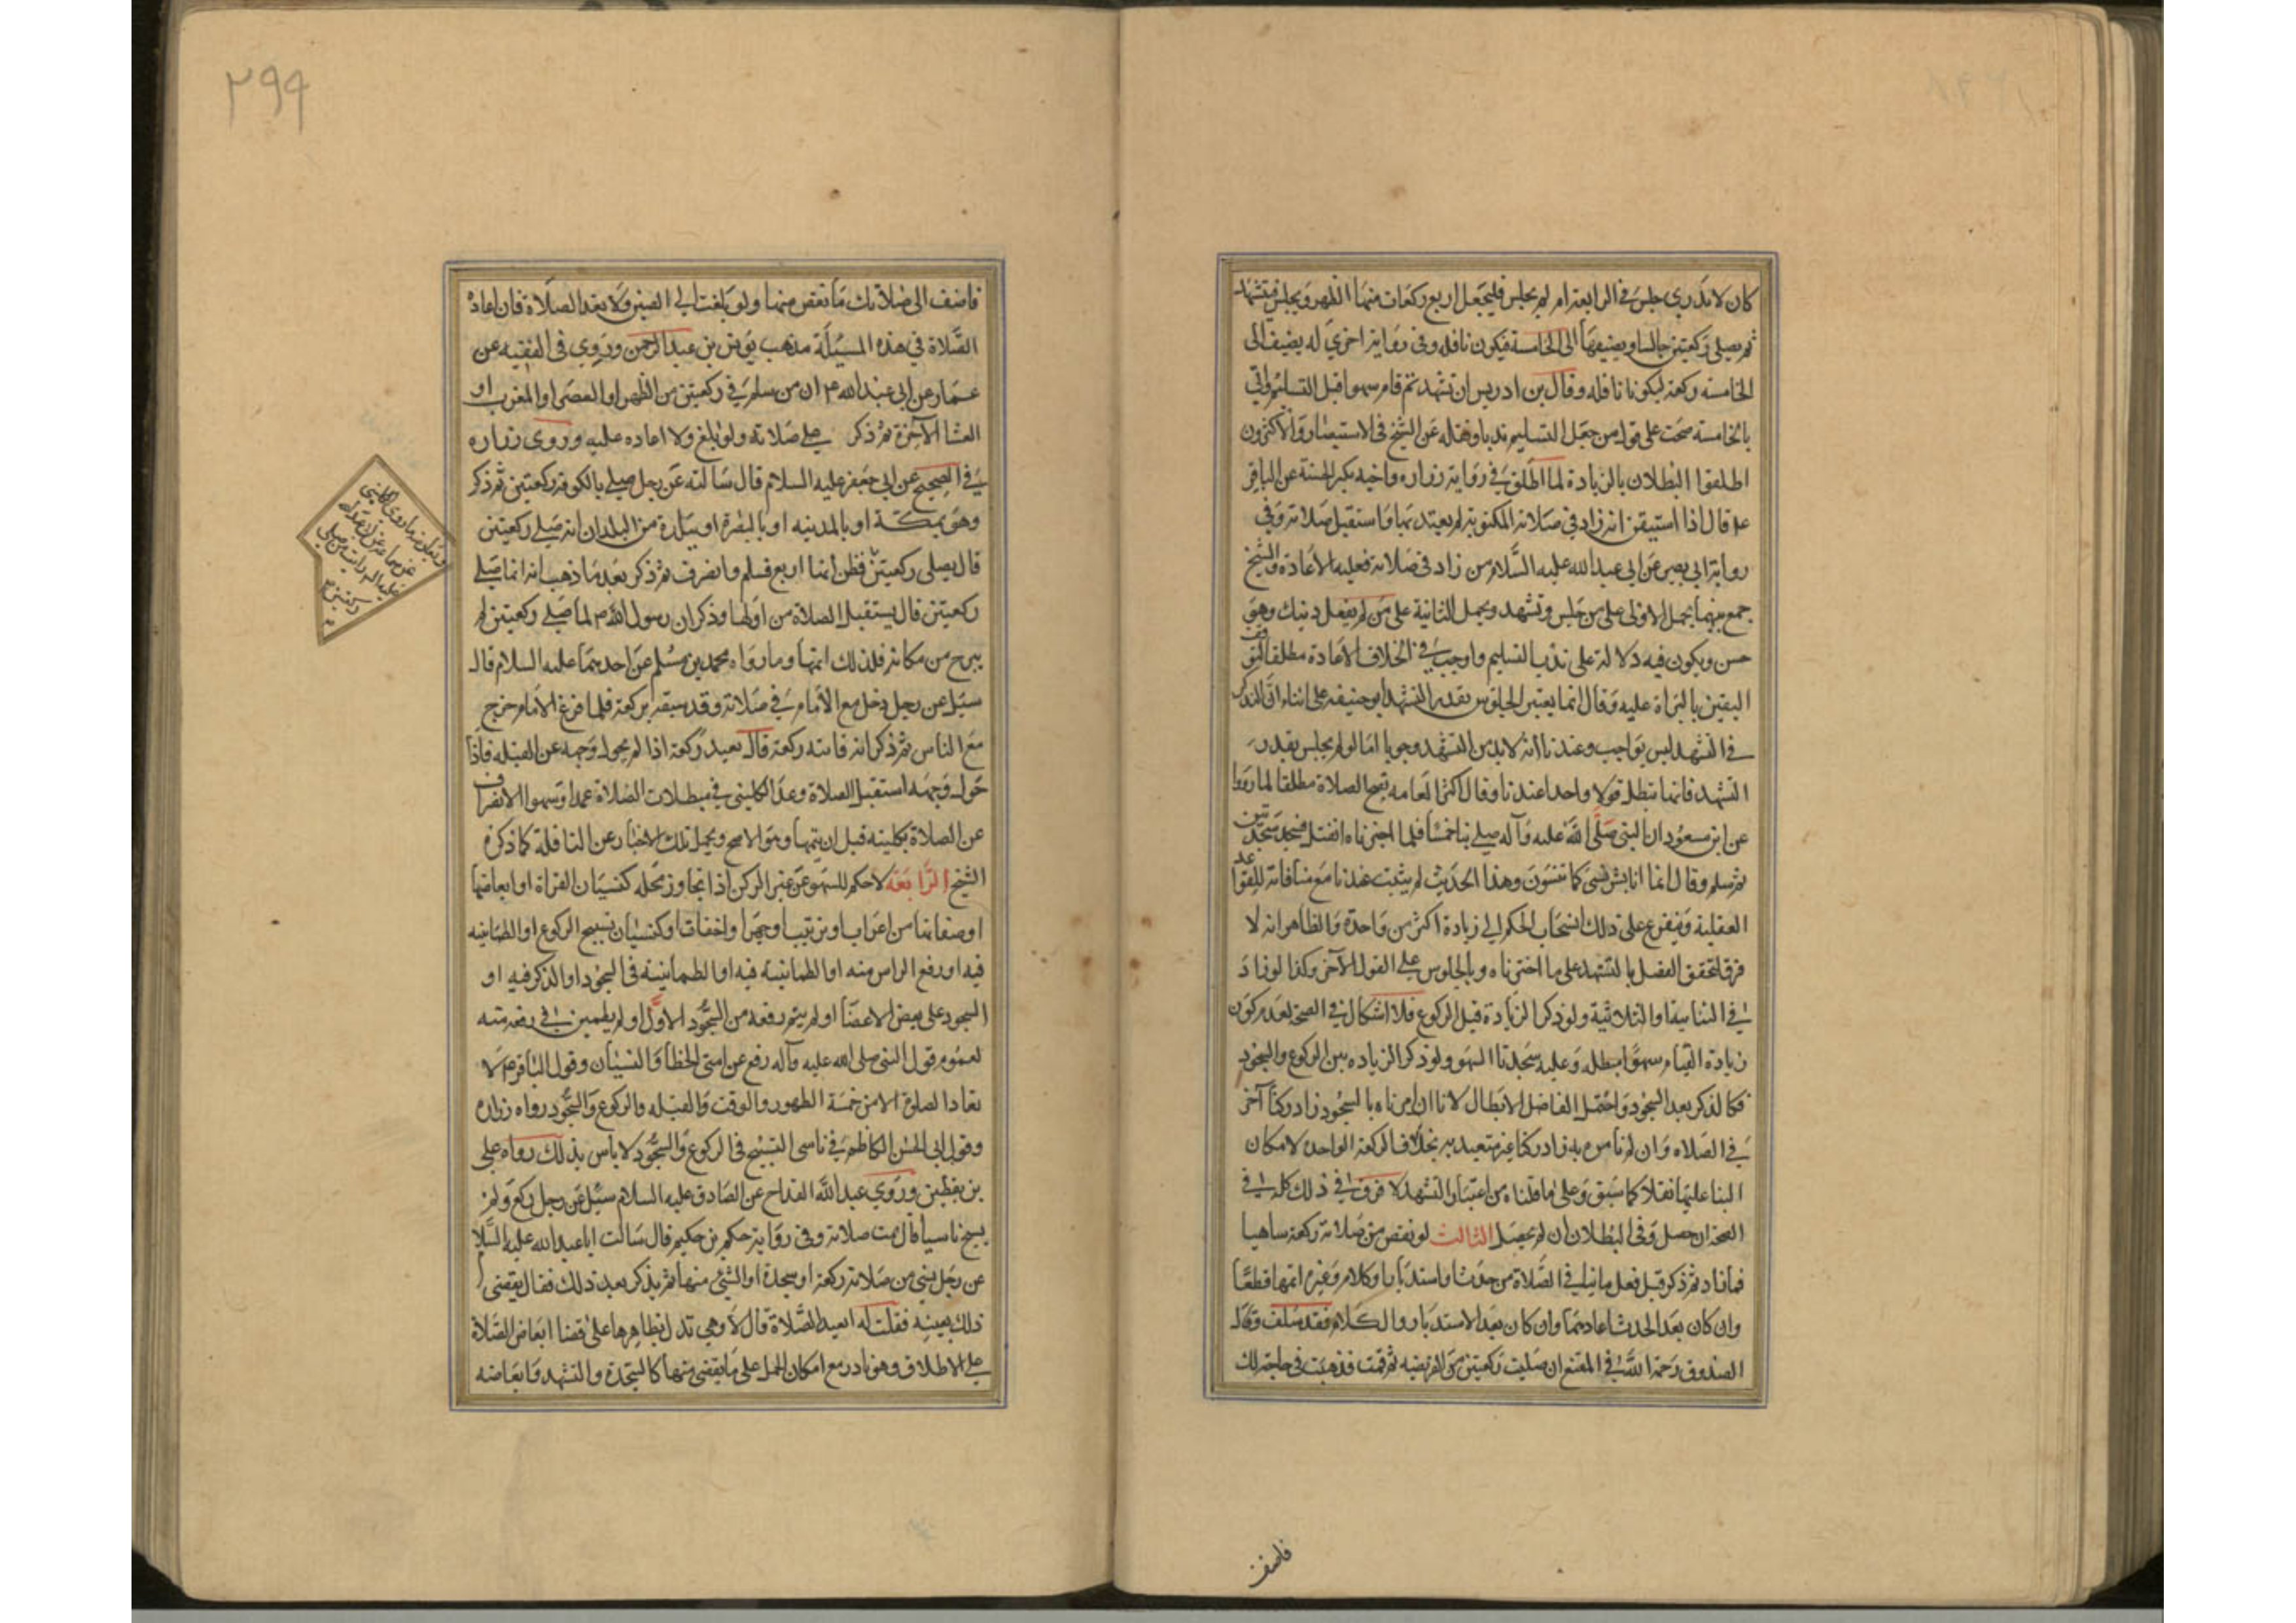 كان لا يدري جلس في الرابعة ام لم يجلس فليجعل اربع ركعات منها الظهر ويجلس فيتشهد
ثم يصلي ركعتين جالسا ويضيفها الى الخامسة فيكون نافله وفي رواية اخري له يضيف الى
الخامسه ركعة ليكونا نافله وقال بن ادريس ان تشهد ثم قام سهوا قبل التسليم واتي
بالخامسه صحت على قول من جعل التسليم ندبا ونقله عن الشيخ في الاستبصار والاكثرون
اطلقوا البطلان بالزيادة لما اطلق في رواية زراره واخيه بكير الحسنة عن الباقر
ع قال اذا استيقن انه زاد في صلاته المكتوبة لم يعتد بها واستقبل صلاته وفي
رواية ابي بصير عن ابي عبدالله عليه السلام من زاد في صلاته فعليه الاعادة والشيخ
جمع بينهما بحمل الاولى على من جلس وتشهد ويحمل الثانية على من لم يفعل ذينك وهو
حسن ويكون فيه دلالة على ندب التسليم واوجب في الخلاف الاعادة مطلقا
اليقين بالبراة عليه وقال انما يعتبر الجلوس بقدر التشهد ابو حنيفه على ان الذكر
في التشهد ليس بواجب وعندنا انه لا بد من التشهد وجوبا اما لو لم يجلس بقدر
التشهد فانها تبطل قولا واحدا عندنا وقال اكثر العامه تصح الصلاة مطلقا لما رووا
عن ابن مسعود ان النبي صلى الله عليه وآله صلى بنا خمسا فلما اخبرناه انفتل فسجد سجدتين
ثم سلم وقال انما انا بشر انسى كما تنسون وهذا الحديث لم يثبت عندنا مع منافاته للقواعد
العقلية ويتفرع على ذلك انسحاب الحكم الى زيادة اكثر من واحدة والظاهر انه لا
فرق لتحقق الفصل بالتشهد على ما اخترناه وبالجلوس على القول الآخر وكذا لو زاد
في الثنائية او الثلاثية ولو ذكر الزيادة قبل الركوع فلا اشكال في الصحة لعدم كون
زيادة القيام سهوا مبطله وعليه سجدتا السهو ولو ذكر الزياده بين الركوع والسجود
فكالذكر بعد السجود واحتمل الفاضل الابطال لانا ان امرناه بالسجود زاد ركنا آخر
في الصلاه وان لم نأمره به زاد ركنا غير متعبد به بخلاف الركعة الواحدة لامكان
البنا عليها نفلا كما سبق وعلى ما قلناه من اعتبار التشهد لا فرق في ذلك كله في
الصحة ان حصل وفي البطلان ان لم يحصل الثالث لو نقص من صلاته ركعة ساهيا
فما زاد ثم ذكر قبل فعل ما ينافي الصلاة من حدث او استدبار او كلام وغيره اتمها قطعا
وان كان بعد الحدث اعادها وان كان بعد الاستدبار والكلام فقد سلف وقال
الصدوق رحمه الله في المقنع ان صليت ركعتين من الفريضه ثم قمت فذهبت في حاجة لك
فاضف
٢٩٩
فاضف الى صلاتك ما نقص منها ولو بلغت الى الصين ولا تعد الصلاة فان اعادة
الصلاة في هذه المسئلة مذهب يونس بن عبدالرحمن وروي في الفقيه عن
عمار عن ابي عبدالله ع ان من سلم في ركعتين من الظهر او العصر او المغرب او
العشا الآخرة ثم ذكر صلى صلاته ولو بلغ ولا اعاده عليه وروى زراره
في الصحيح عن ابي جعفر عليه السلام قال سالته عن رجل صلى بالكوفة ركعتين ثم ذكر
وهو بمكة او بالمدينه او بالبصرة او ببلدة من البلدان انه صلى ركعتين
قال يصلي ركعتين فظن انها اربع فسلم وانصرف ثم ذكر بعد ما ذهب انه انما صلى
ركعتين قال يستقبل الصلاة من اولها وذكر ان رسول الله ص لما صلى ركعتين لم
يبرح من مكانه فلذلك اتمها وما رواه محمد بن مسلم عن احدهما عليه السلام قال
سئل عن رجل دخل مع الامام في صلاته وقد سبقه بركعة فلما فرغ الامام خرج
مع الناس ثم ذكر انه فاتته ركعة قال يعيد ركعة اذا لم يحول وجهه عن القبلة فاذا
حول وجهه استقبل الصلاة وعد الكليني في مبطلات الصلاة عمدا وسهوا الانصراف
عن الصلاة بكليته قبل ان يتمها وهو الاصح ويحمل تلك الاخبار عن النافلة كما ذكره
الشيخ الرابعة لا حكم للسهو عن غير الركن اذا تجاوز محله كنسيان القراة او ابعاضها
او صفاتها من اعراب او ترتيب او جهر او اخفات او كنسيان تسبيح الركوع او الطمانينه
فيه او رفع الراس منه او الطمانينة فيه او الطمانينة في السجود او الذكر فيه او
السجود على بعض الاعضا او لم يتم رفعه من السجود الاول او لم يطمئن في رفعه منه
لعموم قول النبي صلى الله عليه وآله رفع عن امتي الخطأ والنسيان وقول الباقر ع لا
تعاد الصلوة الا من خمسة الطهور والوقت والقبله والركوع والسجود رواه زراره
وقول ابي الحسن الكاظم في ناسي التسبيح في الركوع والسجود لا باس بذلك رواه علي
بن يقطين وروي عبدالله القداح عن الصادق عليه السلام سئل عن رجل ركع ولم
يسبح ناسيا قال تمت صلاته وفي رواية حكم بن حكيم قال سالت ابا عبدالله عليه السلا
عن رجل ينسى من صلاته ركعة او سجدة او الشئ منها ثم يذكر بعد ذلك فقال يقضي
ذلك بعينه فقلت له ايعيد الصلاة قال لا وهي تدل بظاهرها على قضا ابعاض الصلاة
على الاطلاق وهو نادر مع امكان الحمل على ما يقضي منها كالسجدة والتشهد وابعاضه